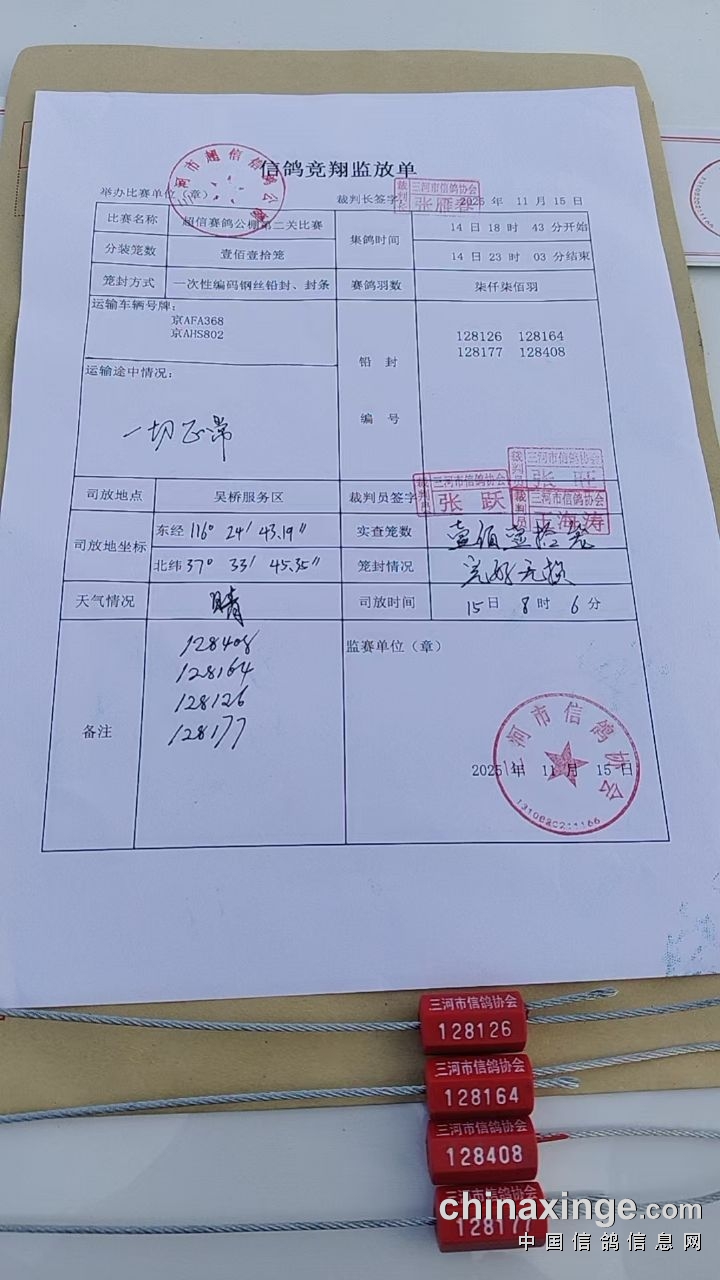 信鸽竞翔监放单
举办比赛单位(章)
裁判长签字
裁判长
三河市信鸽协会
张雁春
2025 年 11 月 15 日
比赛名称
超信赛鸽公棚第二关比赛
集鸽时间
14 日 18 时 43 分开始
分装笼数
壹佰壹拾笼
14 日 23 时 03 分结束
笼封方式
一次性编码钢丝铅封、封条
赛鸽羽数
柒仟柒佰羽
运输车辆号牌:
京AFA368
京AHS802
铅 封
编 号
128126 128164
128177 128408
运输途中情况:
一切正常
司放地点
吴桥服务区
裁判员签字
裁判员
三河市信鸽协会
张 跃
裁判员
三河市信鸽协会
张 旺
裁判员
三河市信鸽协会
王海涛
司放地坐标
东经 116° 24′ 43.19″
实查笼数
壹佰壹拾笼
北纬 37° 33′ 45.35″
笼封情况
完好无损
天气情况
晴
司放时间
15 日 8 时 6 分
备注
128408
128164
128126
128177
监赛单位(章)
三河市信鸽协会
2025 年 11 月 15 日
三河市信鸽协会
128126
三河市信鸽协会
128164
三河市信鸽协会
128408
三河市信鸽协会
128177
chinaxinge.com
中国信鸽信息网